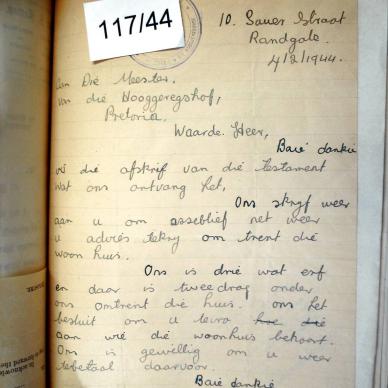 117/44
10. Sauer Straat
Randgate.
4/2/1944.
Aan Die Meester.
van die Hooggeregshof,
Pretoria.
Waarde Heer,
Baie dankie
vir die afskrif van die testament
wat ons ontvang het,
Ons skryf weer
aan u om asseblief net weer
u advies tekry om trent die
woon huis.
Ons is drie wat erf
en daar is tweedrag onder
ons omtrent die huis. ons het
besluit om u te vra hoe die
aan wie die woonhuis behoort.
Ons is gewillig om u weer
tebetaal daarvoor.
Baie dankie